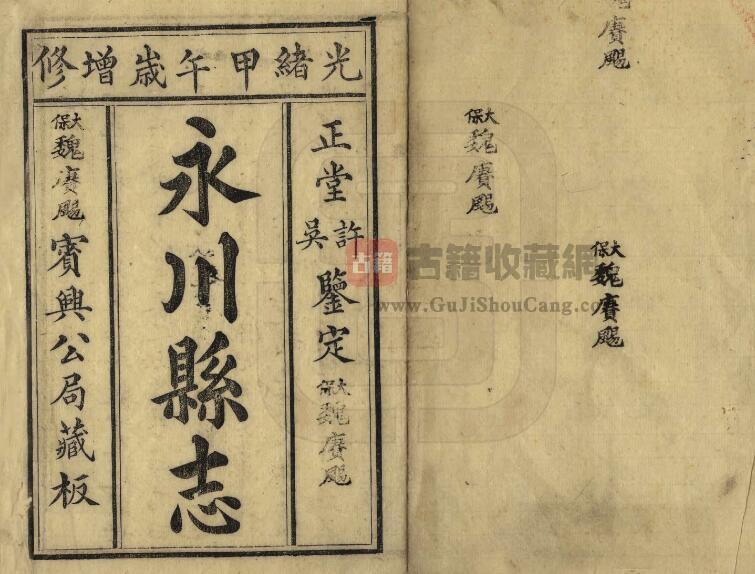 光緒甲午歲增修
正堂許吳鑒定
大保魏賡颺
永川縣志
大保魏賡颺
賓興公局藏板
賡颺
大保魏賡颺
大保魏賡颺
古籍
古籍收藏網
www.GuJiShouCang.com